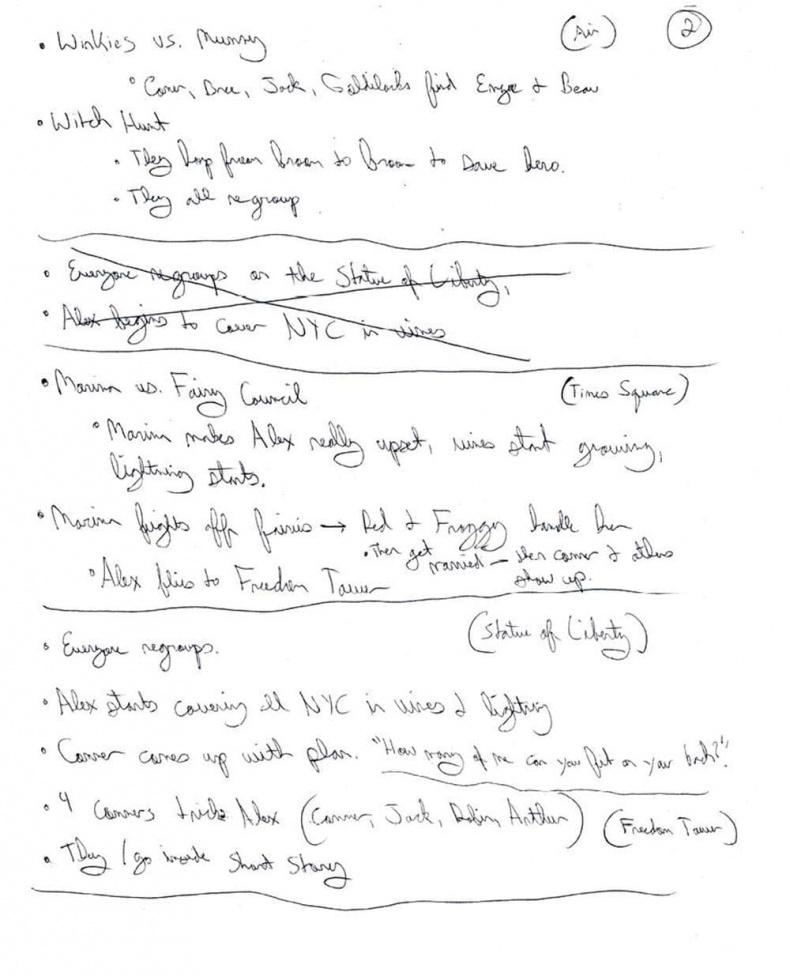 (Air) 2
• Winkies vs. Mummy
° Conner, Bree, Jack, Goldilocks find Emgee & Beau
• Witch Hunt
• They hop from broom to broom to save hero.
• They all regroup
• Everyone regroups on the Statue of Liberty,
• Alex begins to cover NYC in vines
• Marina vs. Fairy Council (Times Square)
° Marina makes Alex really upset, vines start growing,
lightning starts.
• Marina fights off fairies → Red & Froggy handle her
• Then get married – then conner & others
show up.
° Alex flies to Freedom Tower
(Statue of Liberty)
• Everyone regroups.
• Alex starts covering all NYC in vines & lightning
• Conner comes up with plan. "How many of me can you fit on your back?"
• 4 Conners trick Alex (Conner, Jack, Robin, Arthur) (Freedom Tower)
• They / go inside Short Story